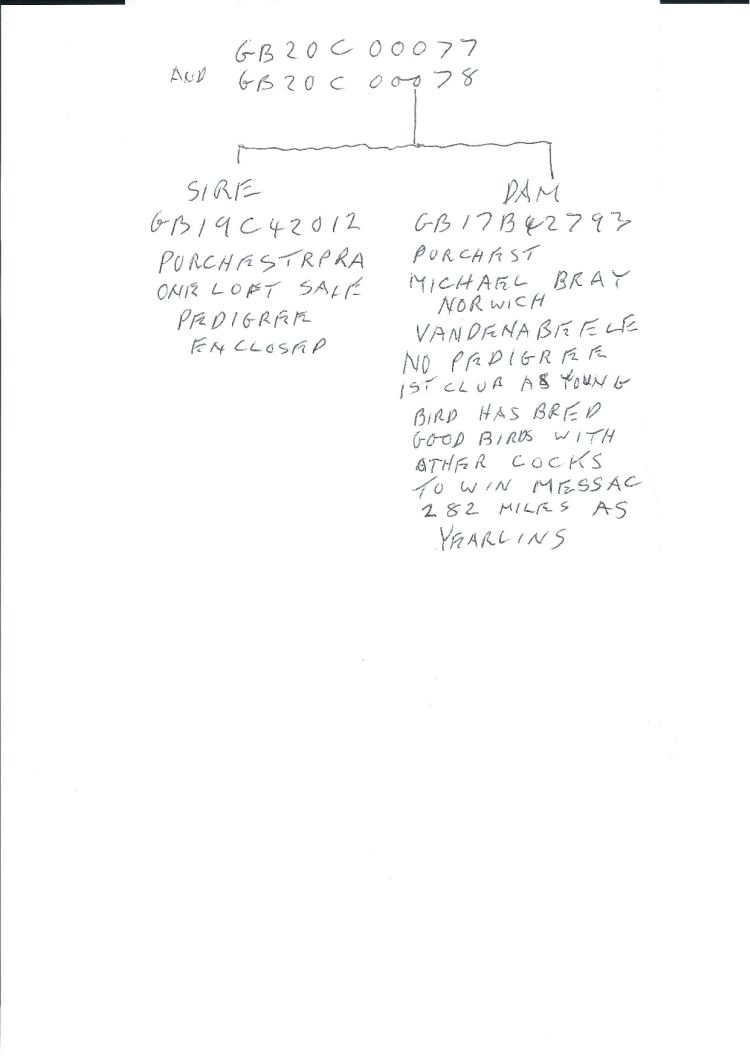 GB 20 C 00077
AND GB 20 C 00078
SIRE
GB 19 C 42012
PURCHEST RPRA
ONE LOFT SALE
PEDIGREE
ENCLOSED
DAM
GB 17 B 42793
PURCHEST
MICHAEL BRAY
NORWICH
VANDENABEELE
NO PEDIGREE
1ST CLUB AS YOUNG
BIRD HAS BRED
GOOD BIRDS WITH
OTHER COCKS
TO WIN MESSAC
282 MILES AS
YEARLINS